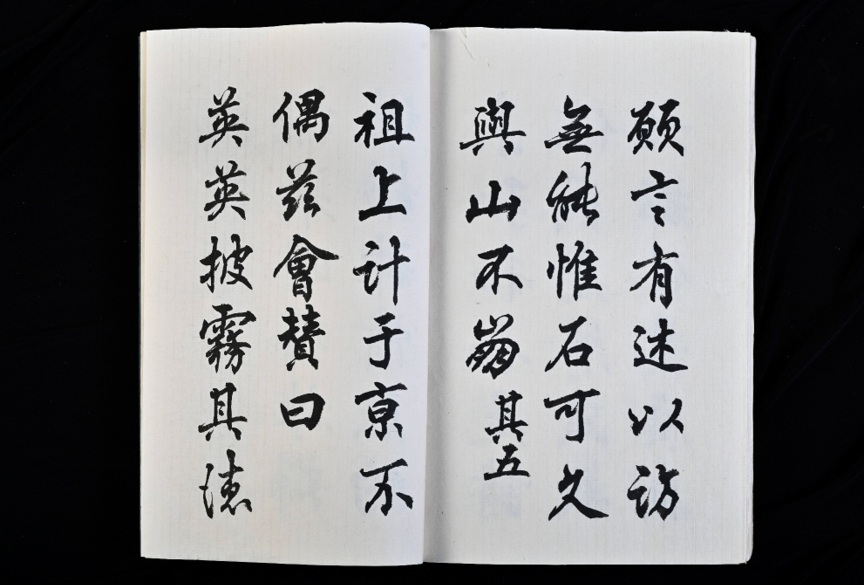 願言有述以訪
無能惟石可久
與山不崩其五
祖上計于京不
偶茲會贊曰
英英披霧其德